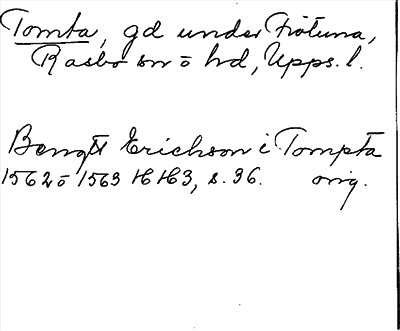 Tomta, gd under Frötuna,
Rasbo sn o hd, Upps. l.
Bengtt Erichson i Tompta
1562 o 1563 HH3, s. 36. orig.